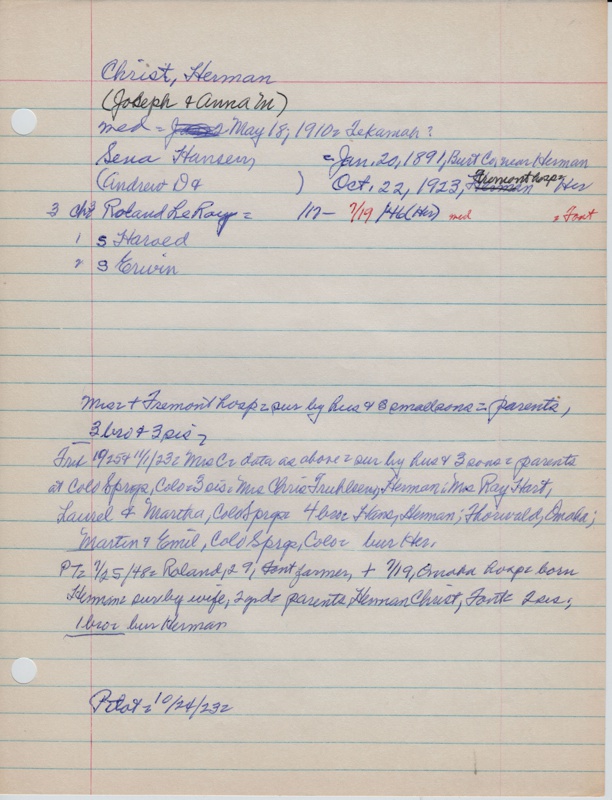 Christ, Herman
(Joseph & Anna M)
med = May 18, 1910 = Tekamah?
Sena Hansen, = Jan. 20, 1891, Burt Co, near Herman
(Andrew D & ) Oct. 22, 1923, Herman Fremont hosp = Her
3 ch = Roland LeRoy = 7/19/48 (Her) med = Font
1 S Harold
2 S Erwin
Mrs = + Fremont hosp = sur by hus & 3 small sons = parents,
3 bro & 3 sis =
10/25 & 11/1/23 = Mrs C = data as above = sur by hus & 3 sons = parents
at Colo Sprgs, Colo = 3 sis = Mrs Chris Truhlsen, Herman; Mrs Ray Hart,
Laurel & Martha, Colo Sprgs = 4 bro = Hans, Herman; Thorwald, Omaha;
Martin & Emil, Colo Sprgs, Colo = bur Her.
PT = 7/25/48 = Roland, 29, Font farmer, + 7/19, Omaha hosp = born
Herman = sur by wife, 2 yndo parents, Herman Christ, Font = 2 sis;
1 bro = bur Herman
Pilot = 10/24/23 =